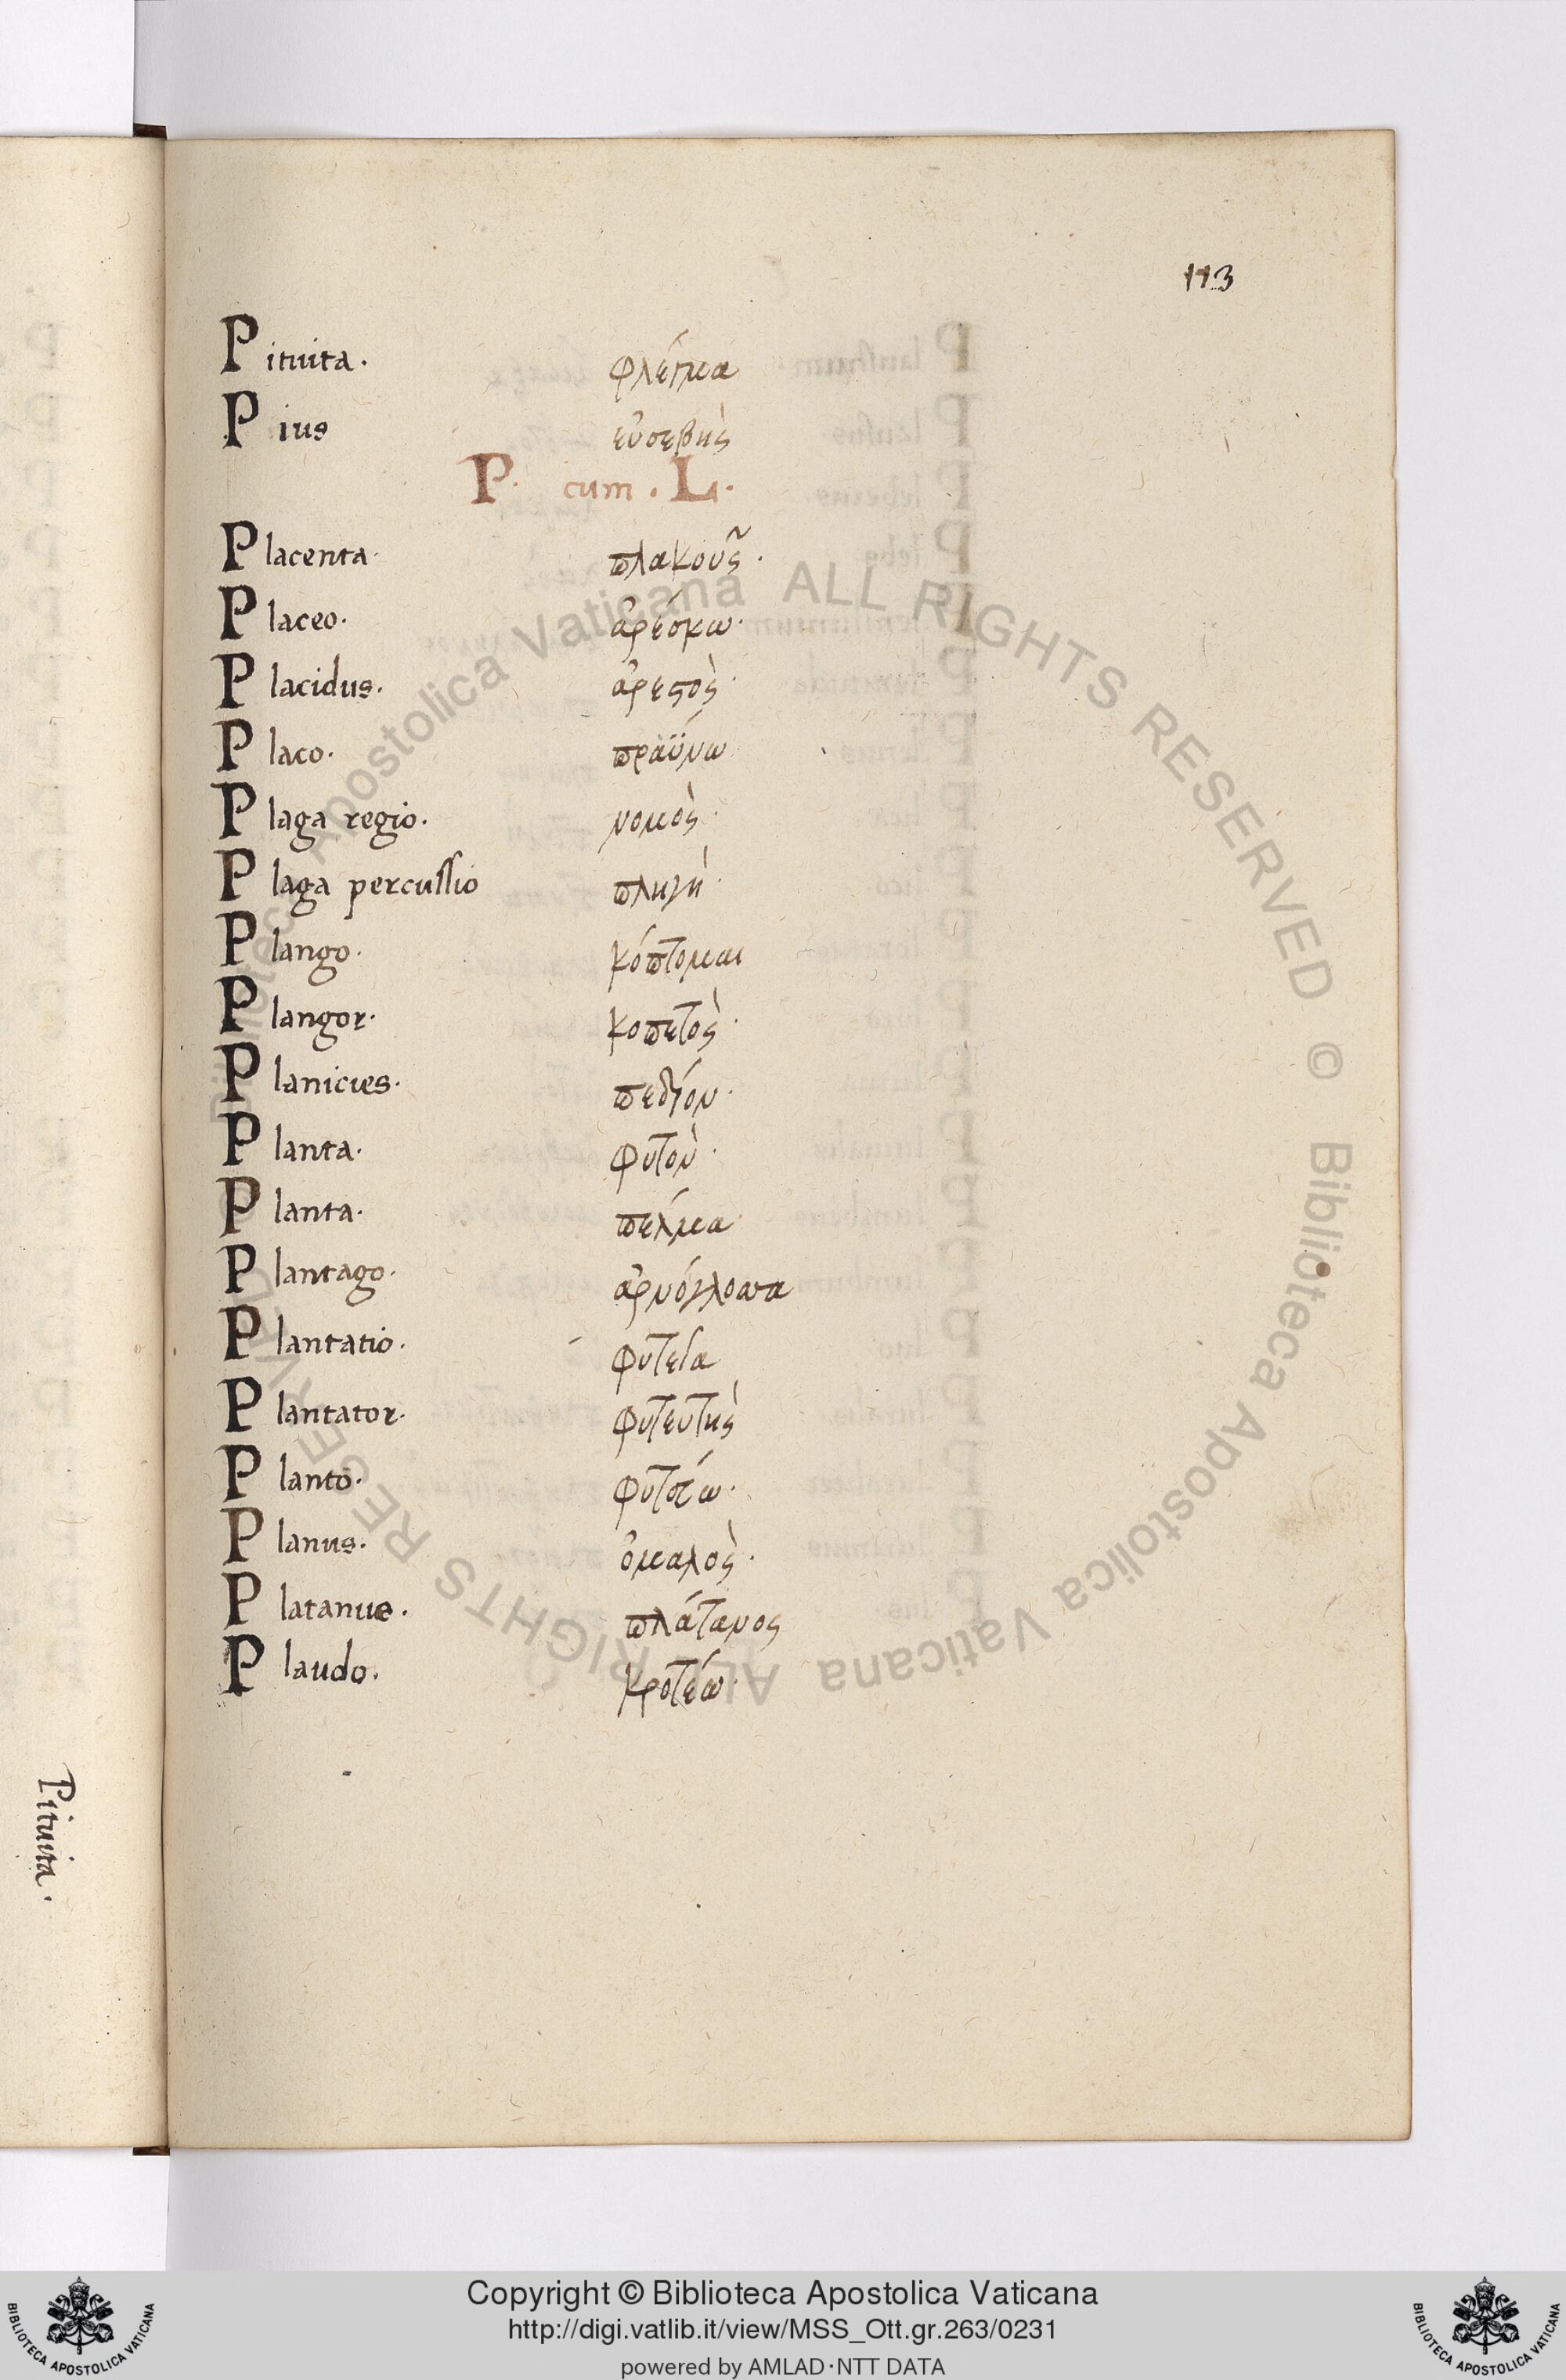 113
Pituita. φλέγμα
Pius εὐσεβὴς
P. cum. L.
Placenta. πλακοῦς.
Placeo. ἀρέσκω.
Placidus. ἀρεστὸς.
Placo. πραΰνω
Plaga regio. νομὸς.
Plaga percussio πληγὴ.
Plango. κόπτομαι
Plangor. κοπετὸς.
Planicies. πεδίον.
Planta. φυτὸν.
Planta. πέλμα.
Plantago. ἀρνόγλοσσα
Plantatio. φυτεία
Plantator. φυτευτὴς
Planto.
Planus. ὀμαλὸς.
Platanus. πλάτανος
Plaudo. κροτέω.
Pituita.
Biblioteca Apostolica Vaticana ALL RIGHTS RESERVED © Biblioteca Apostolica Vaticana ALL RIGHTS RESERVED ©
Copyright © Biblioteca Apostolica Vaticana
http://digi.vatlib.it/view/MSS_Ott.gr.263/0231
powered by AMLAD·NTT DATA
BIBLIOTECA APOSTOLICA VATICANA
BIBLIOTECA APOSTOLICA VATICANA